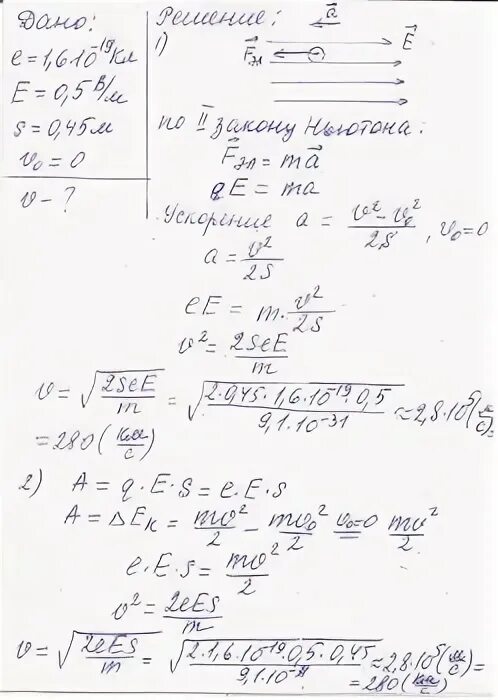 Дано:
e = 1,6·10⁻¹⁹ Кл
E = 0,5 В/м
s = 0,45 м
v₀ = 0
v - ?
Решение:
a⃗
1)
F⃗эл
E⃗
по II закону Ньютона:
F⃗эл = ma⃗
qE = ma
Ускорение a = (v² - v₀²)/2S, v₀ = 0
a = v²/2S
eE = m·v²/2S
v² = 2SeE/m
v = √(2SeE/m) = √(2·0,45·1,6·10⁻¹⁹·0,5/9,1·10⁻³¹) ≈ 2,8·10⁵(м/с) =
= 280 (км/с)
2) A = q·E·s = e·E·s
A = ΔEк = mv²/2 - mv₀²/2 v₀=0 mv²/2
e·E·s = mv²/2
v² = 2eEs/m
v = √(2eEs/m) = √(2·1,6·10⁻¹⁹·0,5·0,45/9,1·10⁻³¹) ≈ 2,8·10⁵(м/с) =
= 280 (км/с)